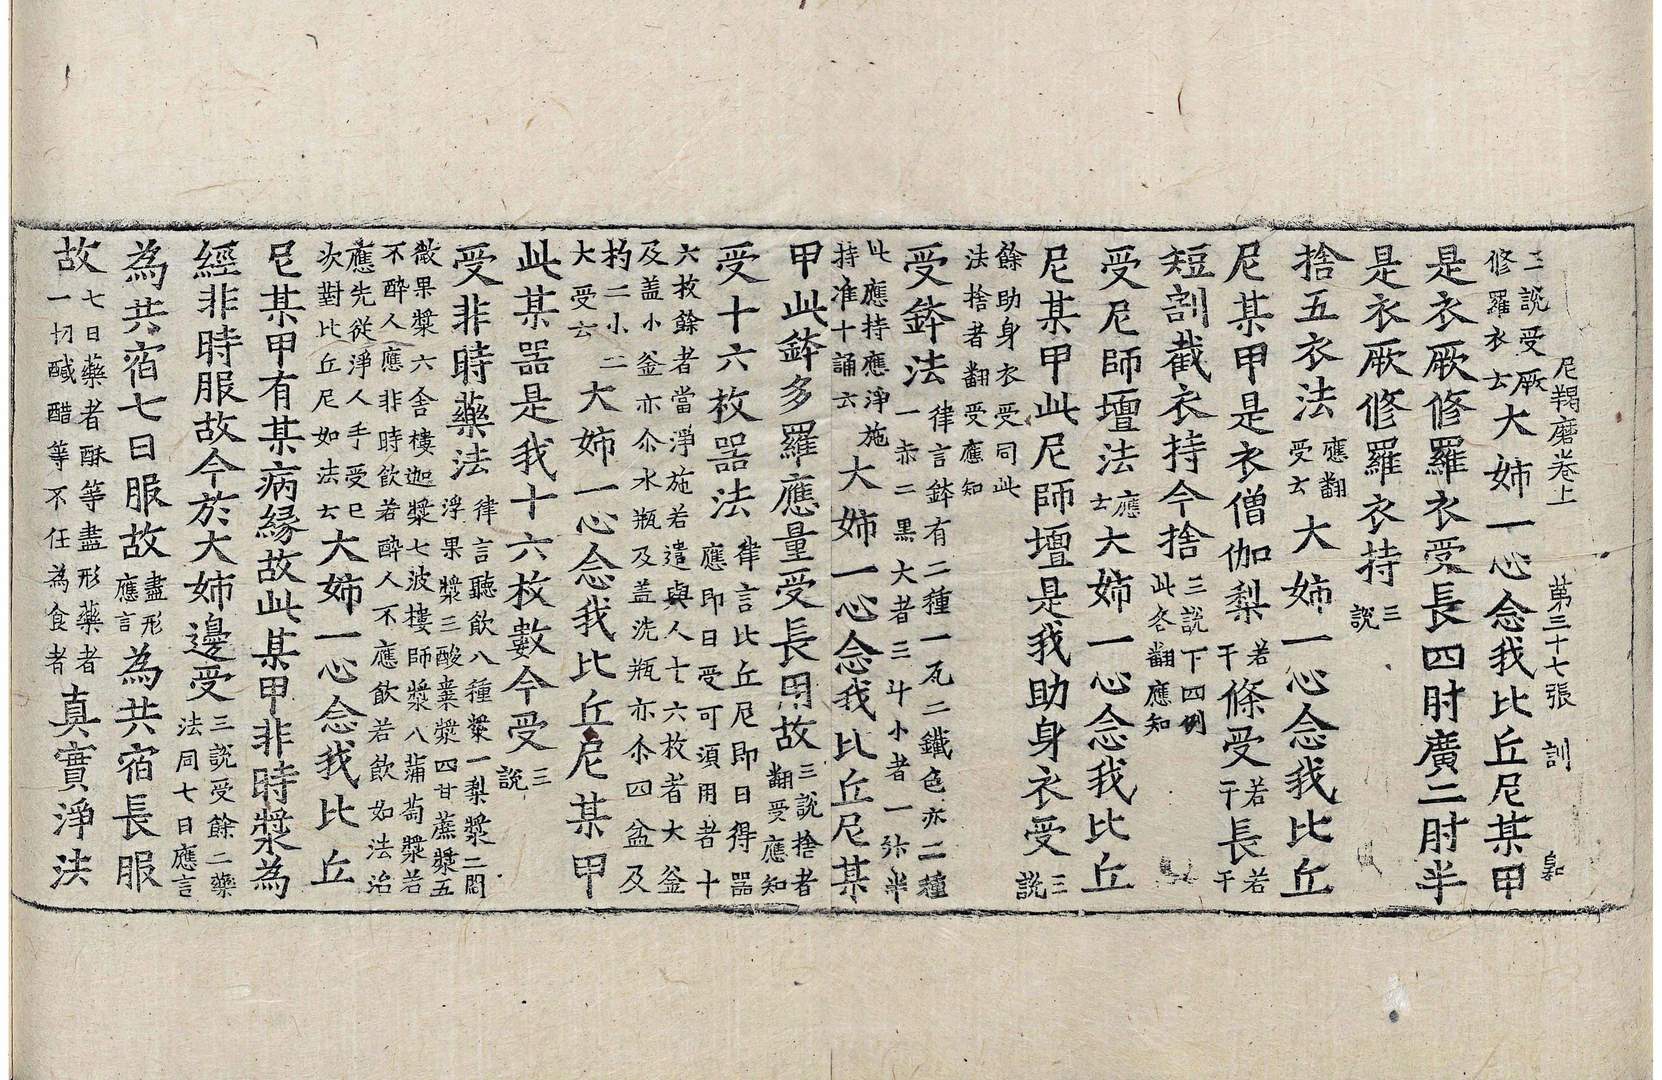 尼羯磨卷上 第三十七張 訓
三說受厥修羅衣云大姉一心念我比丘尼某甲
是衣厥修羅衣受長四肘廣二肘半
是衣厥修羅衣持三說
捨五衣法應翻受云大姉一心念我比丘
尼某甲是衣僧伽梨若干條受若干長若干
短割截衣持今捨三說下四例此各翻應知
受尼師壇法應云大姉一心念我比丘
尼某甲此尼師壇是我助身衣受三說
餘助身衣受同此法捨者翻受應知
受鉢法律言鉢有二種一瓦二鐵色亦二種一赤二黑大者三斗小者一斗半
此應持應淨施持准十誦云大姉一心念我比丘尼某
甲此鉢多羅應量受長用故三說捨者翻受應知
受十六枚器法律言比丘尼即日得器應即日受可須用者十
六枚餘者當淨施若遣與人十六枚者大釜及盖小釜亦尒水瓶及盖洗瓶亦尒四盆及
杓二小二大受云大姉一心念我比丘尼某甲
此某器是我十六枚數今受三說
受非時藥法律言聽飲八種漿一梨漿二閻浮果漿三酸棗漿四甘蔗漿五
蘞果漿六舍樓迦漿七波樓師漿八蒲萄漿若不醉人應非時飲若醉人不應飲若飲如法治
應先從淨人手受已次對比丘尼如法云大姉一心念我比丘
尼某甲有某病緣故此某甲非時漿為
經非時服故今於大姉邊受三說受餘二藥法同七日應言
為共宿七日服故盡形應言為共宿長服
故七日藥者酥等盡形藥者一切醎醋等不任為食者真實淨法